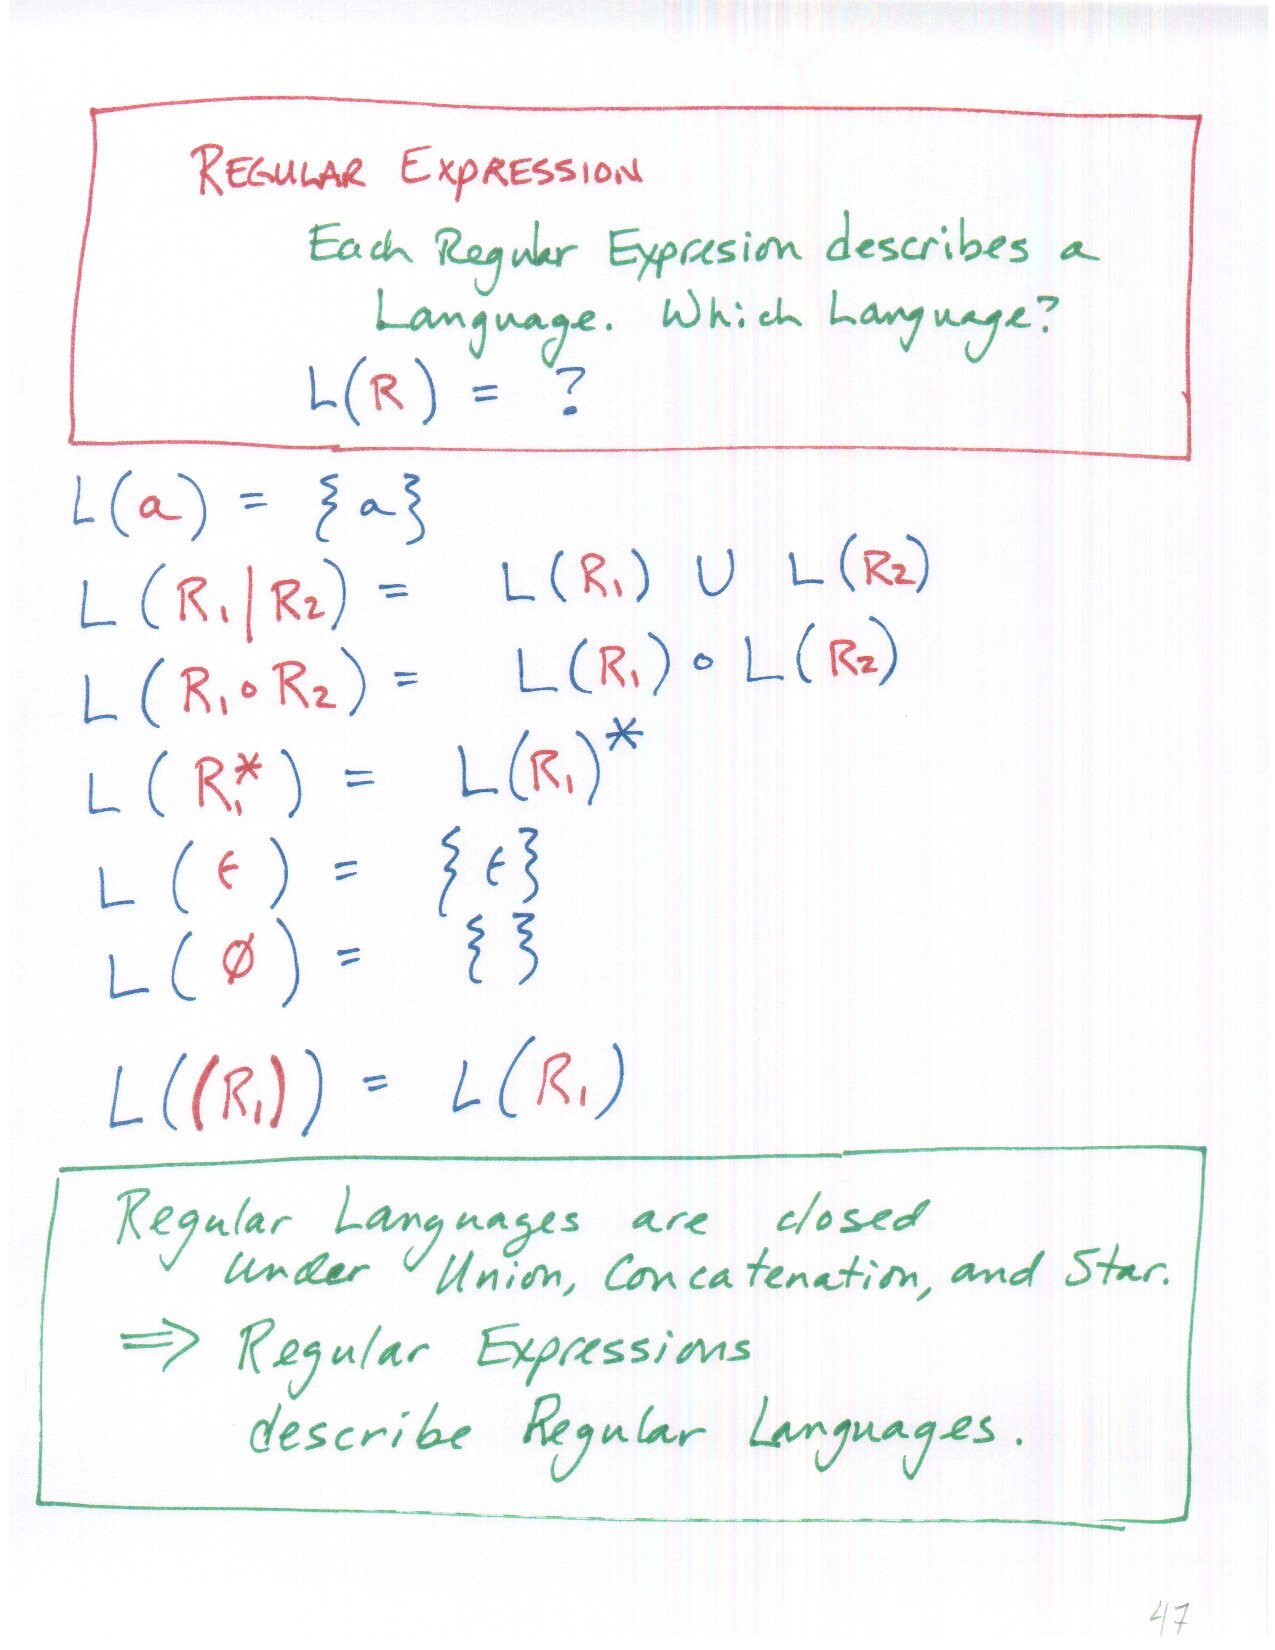 REGULAR EXPRESSION
Each Regular Expresion describes a
Language. Which Language?
L(R) = ?
L(a) = {a}
L(R₁|R₂) = L(R₁) ∪ L(R₂)
L(R₁∘R₂) = L(R₁)∘L(R₂)
L(R₁*) = L(R₁)*
L(ϵ) = {ϵ}
L(∅) = { }
L((R₁)) = L(R₁)
Regular Languages are closed
under Union, Concatenation, and Star.
⇒ Regular Expressions
describe Regular Languages.
47